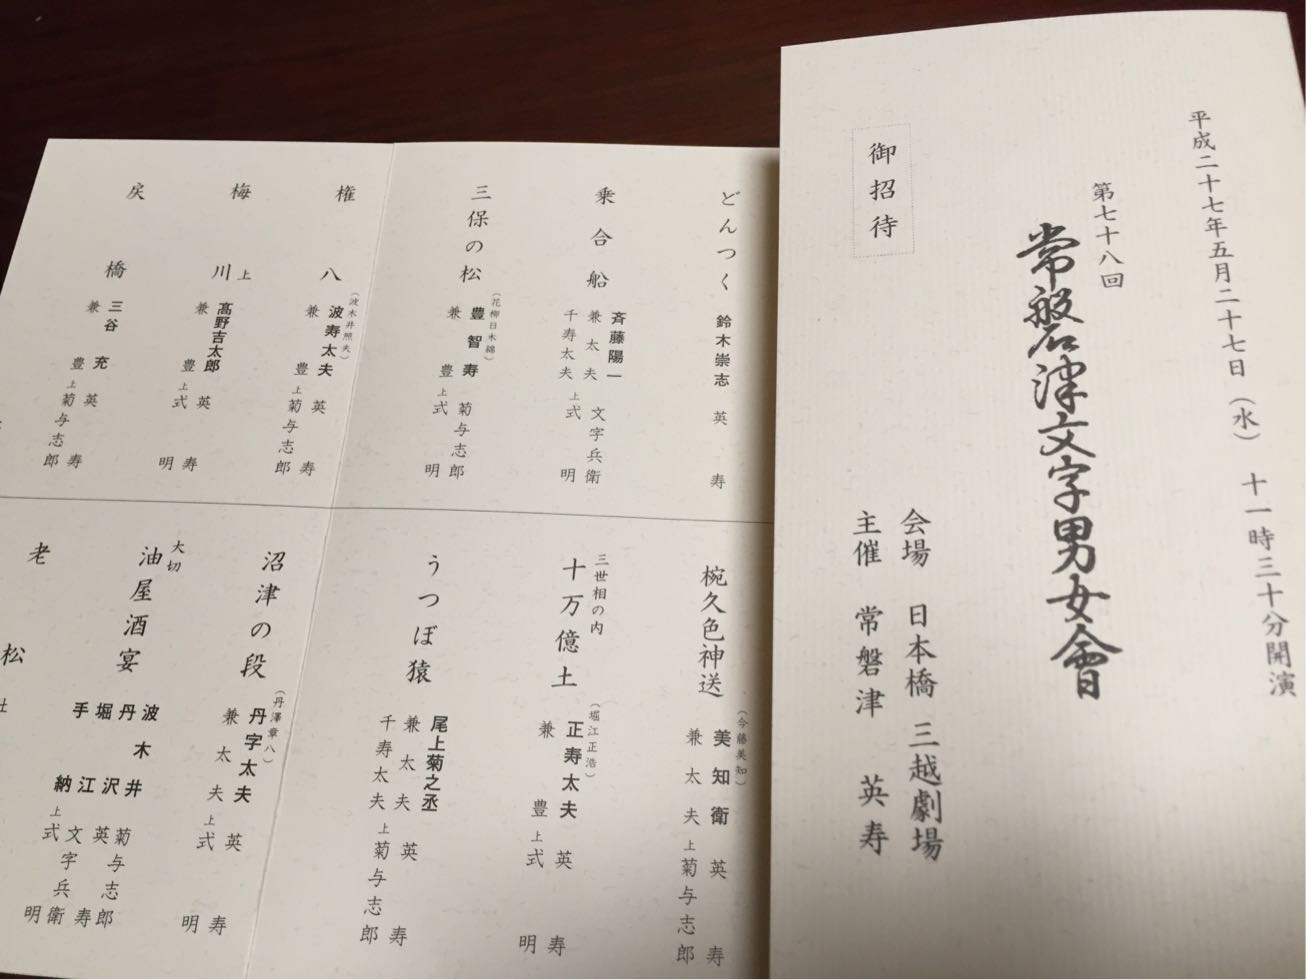 平成二十七年五月二十七日（水）　十一時三十分開演
第七十八回
常磐津文字男女會
御招待
会場　日本橋　三越劇場
主催　常磐津　英寿
どんつく
鈴木崇志
英寿
乗合船
斉藤陽一
兼太夫
千寿太夫
文字兵衛
上式明
三保の松
（花柳日木綿）
豊智寿
兼豊
菊与志郎
上式明
権八
（波木井照夫）
波寿太夫
兼豊
英寿
上菊与志郎
梅川
上
髙野吉太郎
兼豊
英寿
上式明
戻橋
三谷充
兼豊
英寿
上菊与志郎
椀久色神送
（今藤美知）
美知衛
兼太夫
英寿
上菊与志郎
三世相の内
十万億土
（堀江正浩）
正寿太夫
兼豊
英寿
上式明
うつぼ猿
尾上菊之丞
兼太夫
千寿太夫
英寿
上菊与志郎
沼津の段
（丹澤章八）
丹字太夫
兼太夫
英寿
上式明
大切
油屋酒宴
波木井
丹沢
堀江
手納
菊与志郎
英寿
文字兵衛
上式明
老松